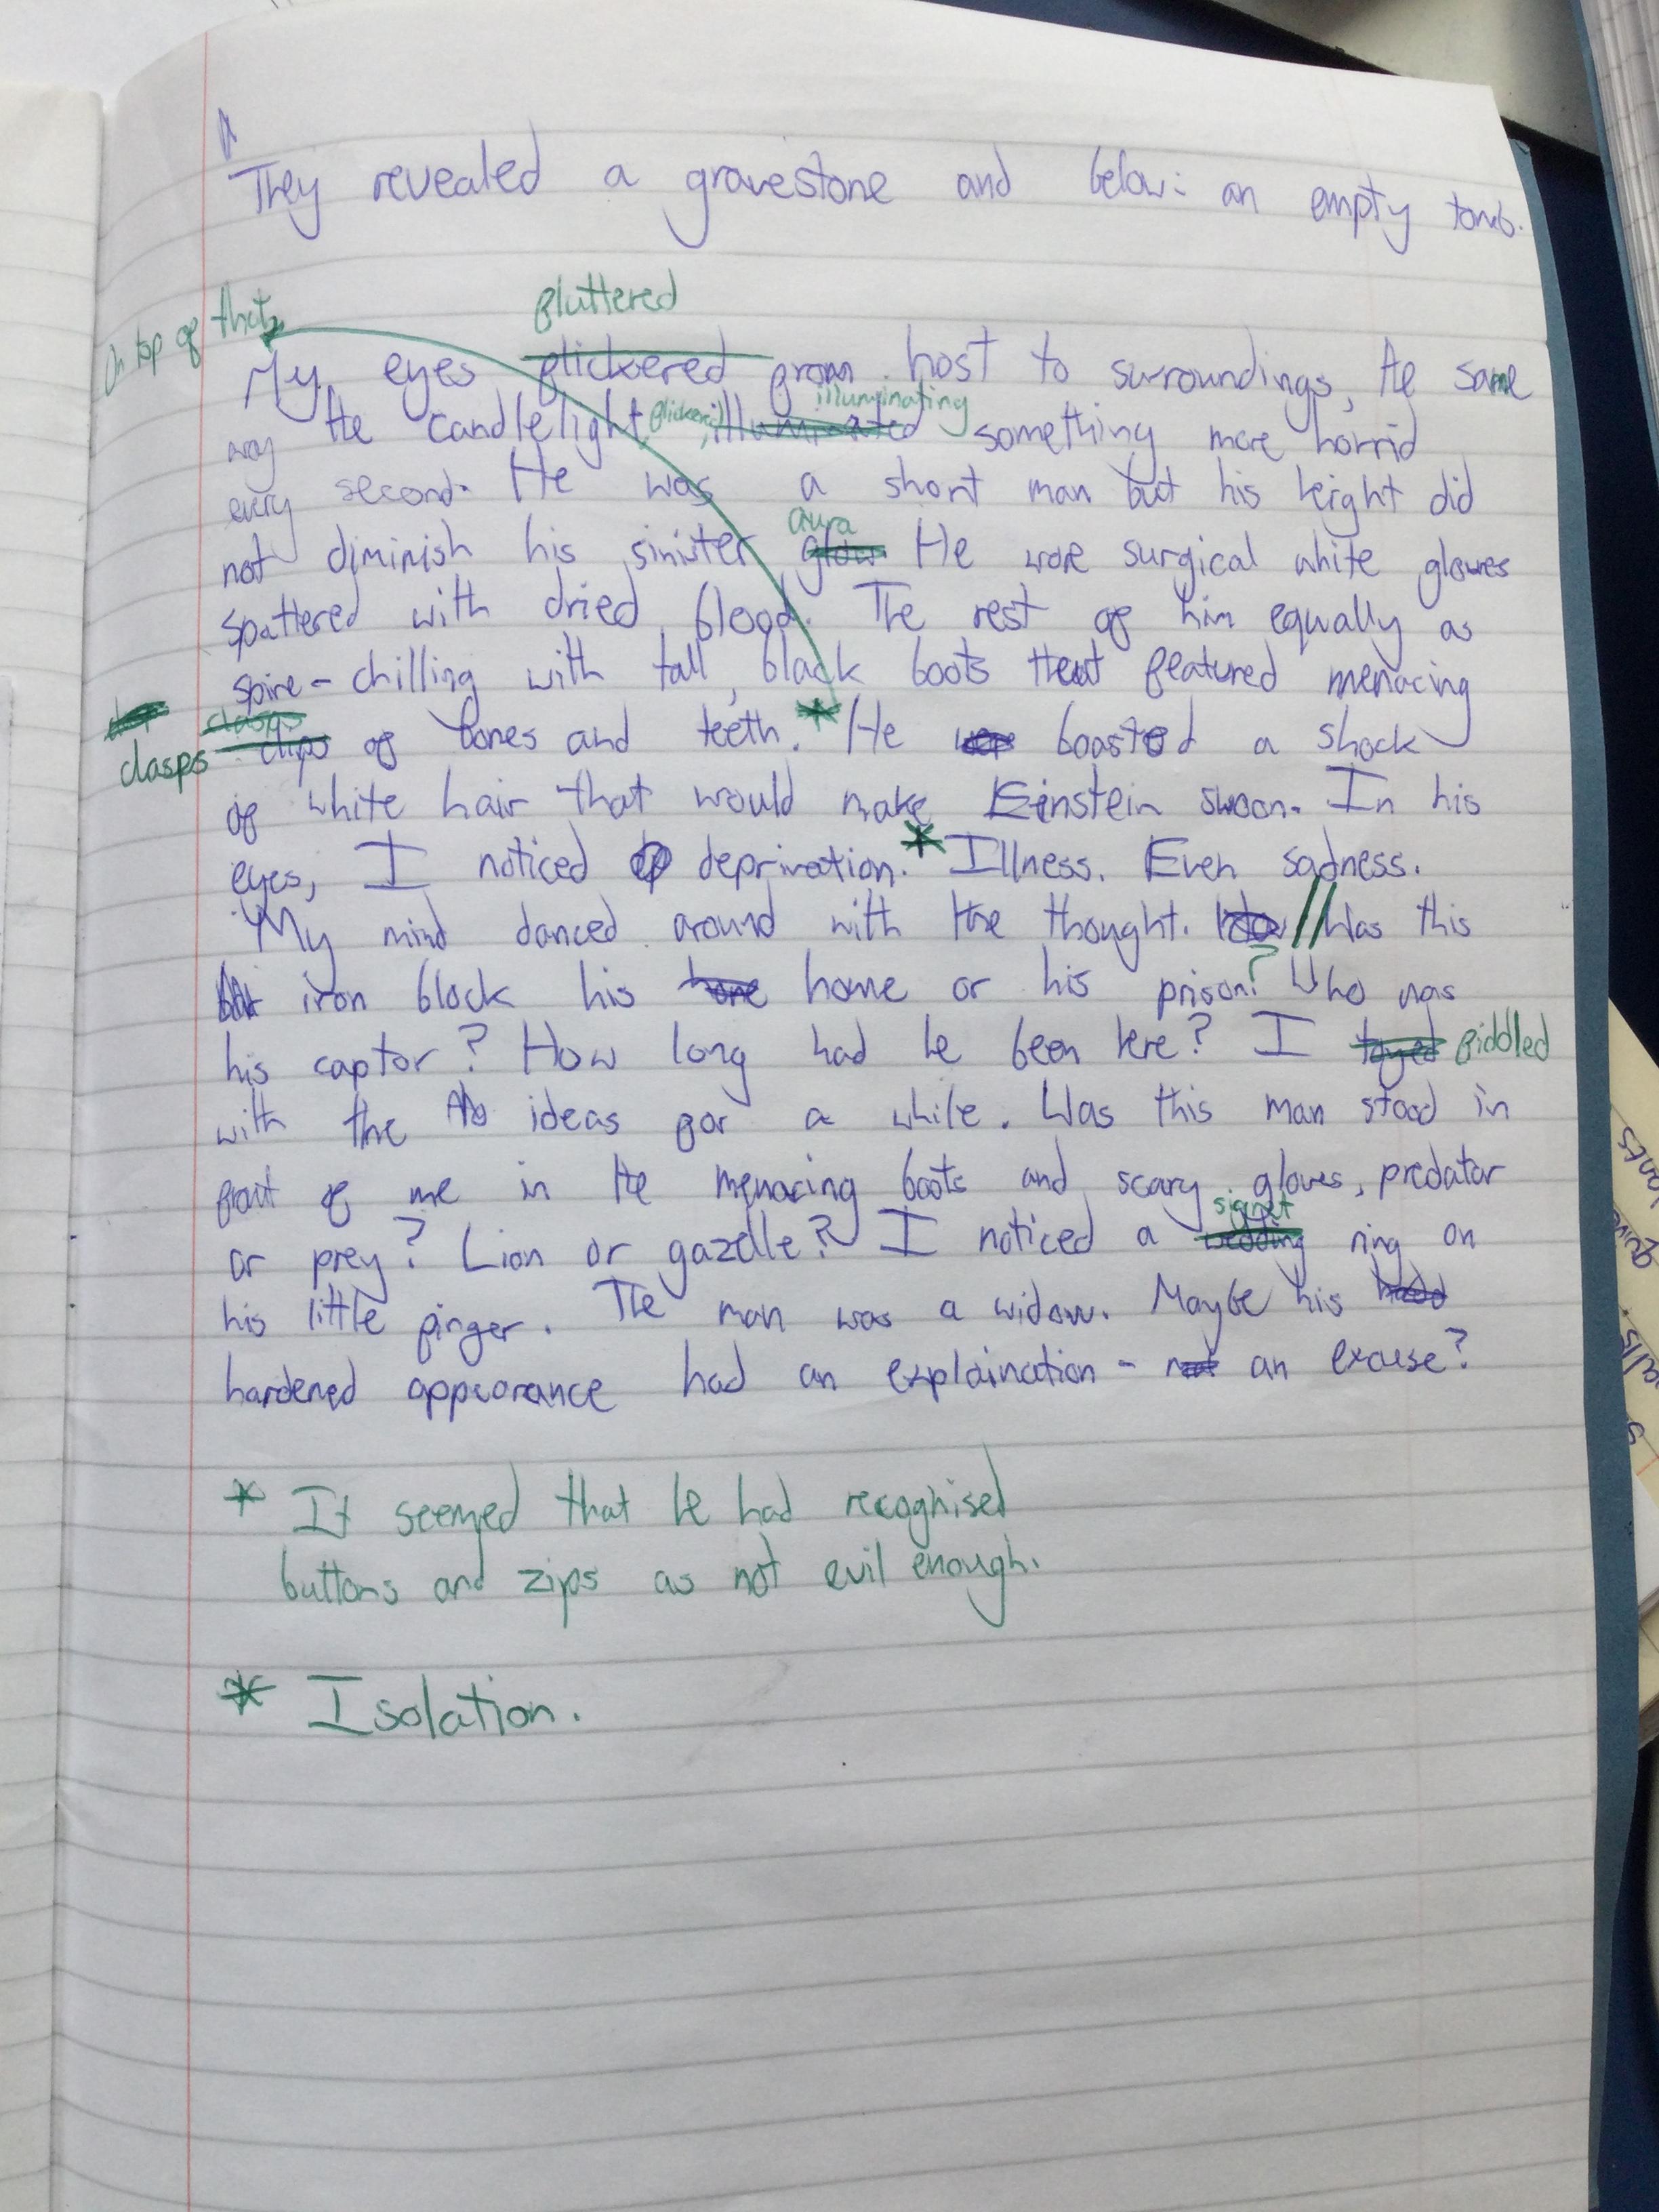 They revealed a gravestone and below: an empty tomb.
On top of that,
fluttered
My eyes flickered from host to surroundings, the same
flickered, illuminating
way the candlelight illuminated something more horrid
every second. He was a short man but his height did
aura
not diminish his sinister glow. He wore surgical white gloves
spattered with dried blood. The rest of him equally as
spine-chilling with tall, black boots that featured menacing
clasps
clasps clips of bones and teeth. * He boasted a shock
of white hair that would make Einstein swoon. In his
eyes, I noticed deprivation. * Illness. Even sadness.
My mind danced around with the thought. // Was this
iron block his home or his prison? Who was
his captor? How long had he been here? I toyed fiddled
with the ideas for a while. Was this man stood in
front of me in the menacing boots and scary gloves, predator
signet
or prey? Lion or gazelle? I noticed a wedding ring on
his little finger. The man was a widow. Maybe his
hardened appearance had an explaination - not an excuse?
* It seemed that he had recognised
buttons and zips as not evil enough.
* Isolation.